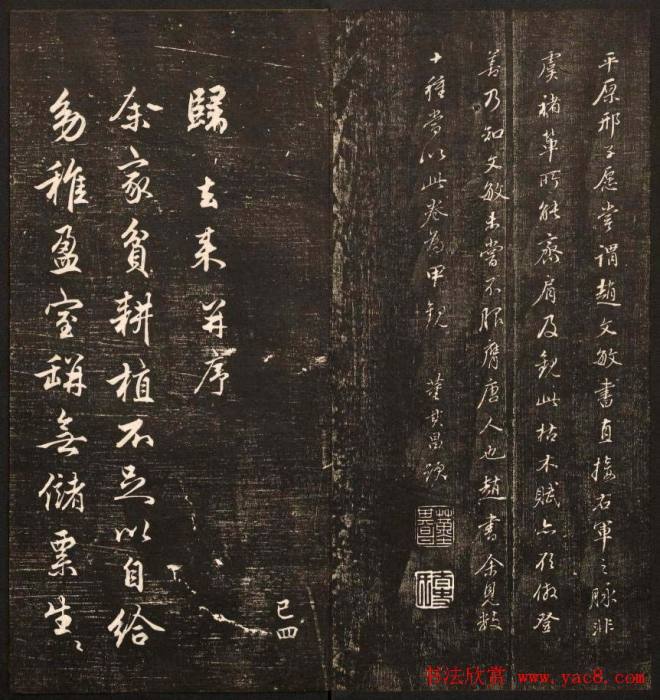 平原邢子愿嘗謂趙文敏書直接右軍之脉非
虞褚輩所能齊肩及觀此枯木賦亦倣登
善乃知文敏未嘗不服膺唐人也趙書余見数
十種當以此卷為甲觀 董其昌題
董其昌
歸去来并序
余家貧耕植不足以自給
幼稚盈室缾無儲粟生〻
巳四
书法欣赏 www.yac8.com